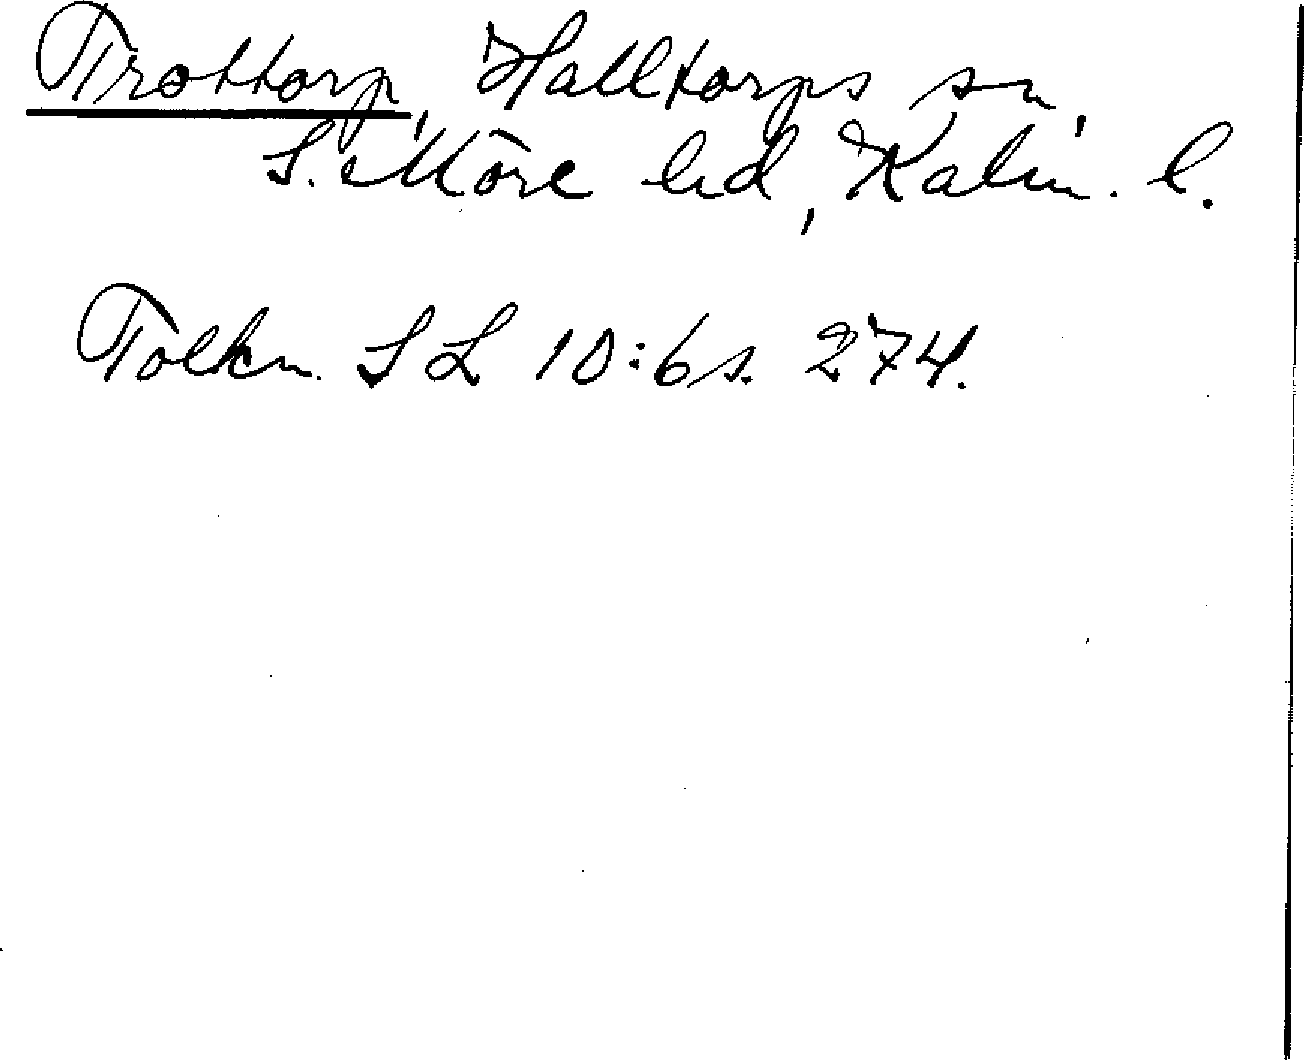 Trottorp, Halltorps sn,
S. Möre hd, Kalm. l.
Tolkn. SL 10:6 s. 274.